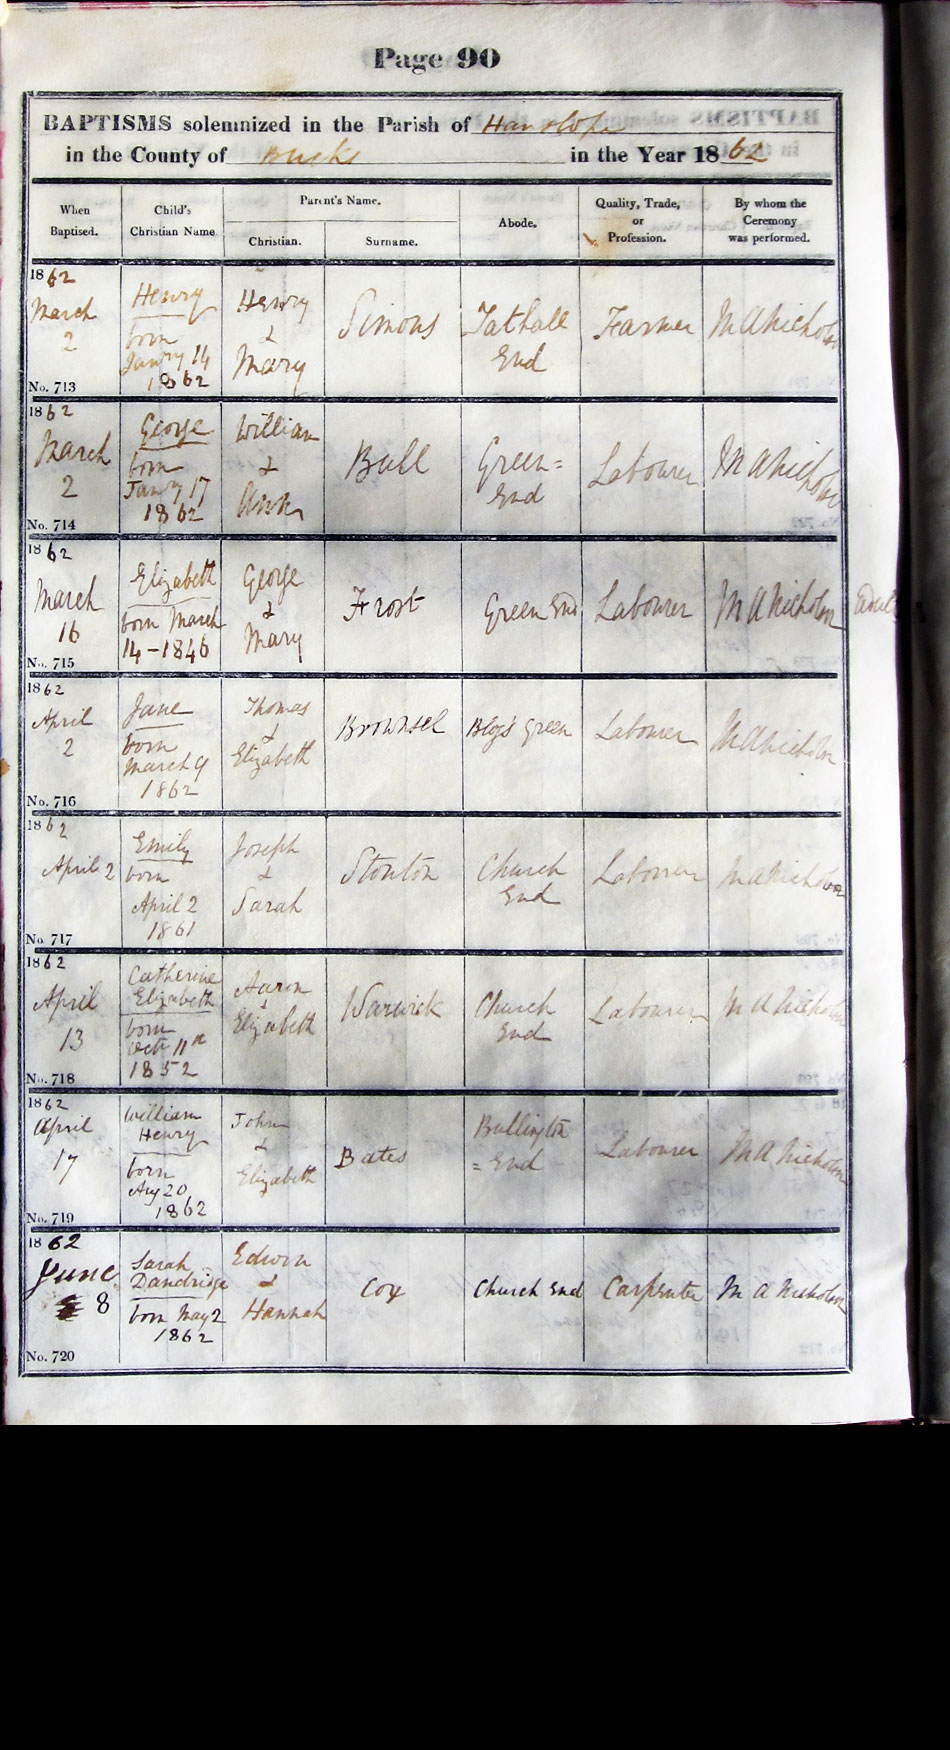 Page 90
BAPTISMS solemnized in the Parish of Hanslope
in the County of Bucks in the Year 1862
When Baptised.
Child's Christian Name
Parent's Name.
Christian.
Surname.
Abode.
Quality, Trade, or Profession.
By whom the Ceremony was performed.
1862
March
2
No. 713
Henry
born
Janry 14
1862
Henry
&
Mary
Simons
Tathall
End
Farmer
M A Nicholson
1862
March
2
No. 714
George
born
Janry 17
1862
William
&
Ann
Bull
Green=
End
Labourer
M A Nicholson
1862
March
16
No. 715
Elizabeth
born March
14-1846
George
&
Mary
Frost
Green End
Labourer
M A Nicholson
Adult
1862
April
2
No. 716
Jane
born
March 9
1862
Thomas
&
Elizabeth
Brownsel
Green
Labourer
M A Nicholson
1862
April 2
No. 717
Emily
born
April 2
1861
Joseph
&
Sarah
Stonton
Church
End
Labourer
M A Nicholson
1862
April
13
No. 718
Catherine
Elizabeth
born
Octr 11th
1852
Aaron
&
Elizabeth
Warwick
Church
End
Labourer
M A Nicholson
1862
April
17
No. 719
William
Henry
born
Aug 20
1862
John
&
Elizabeth
Bates
Bullington
=End
Labourer
M A Nicholson
1862
June
8
No. 720
Sarah
Dandridge
born May 2
1862
Edwin
&
Hannah
Cox
Church End
Carpenter
M A Nicholson